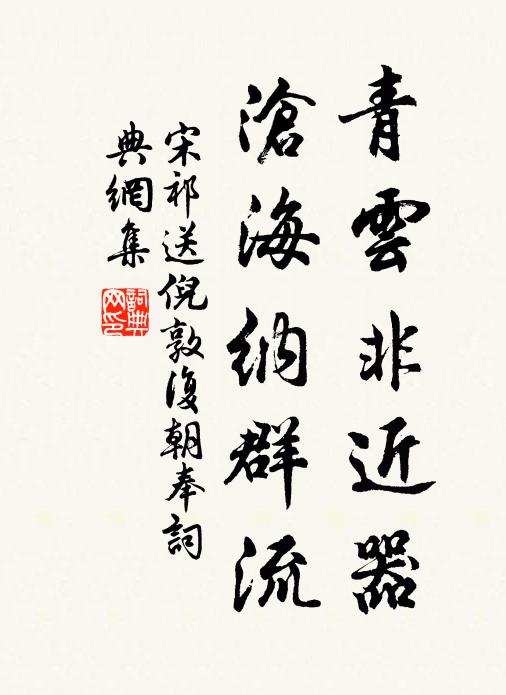 青雲非近器
滄海納群流
宋祁送倪敦復朝奉詞
典網集
詞典網印